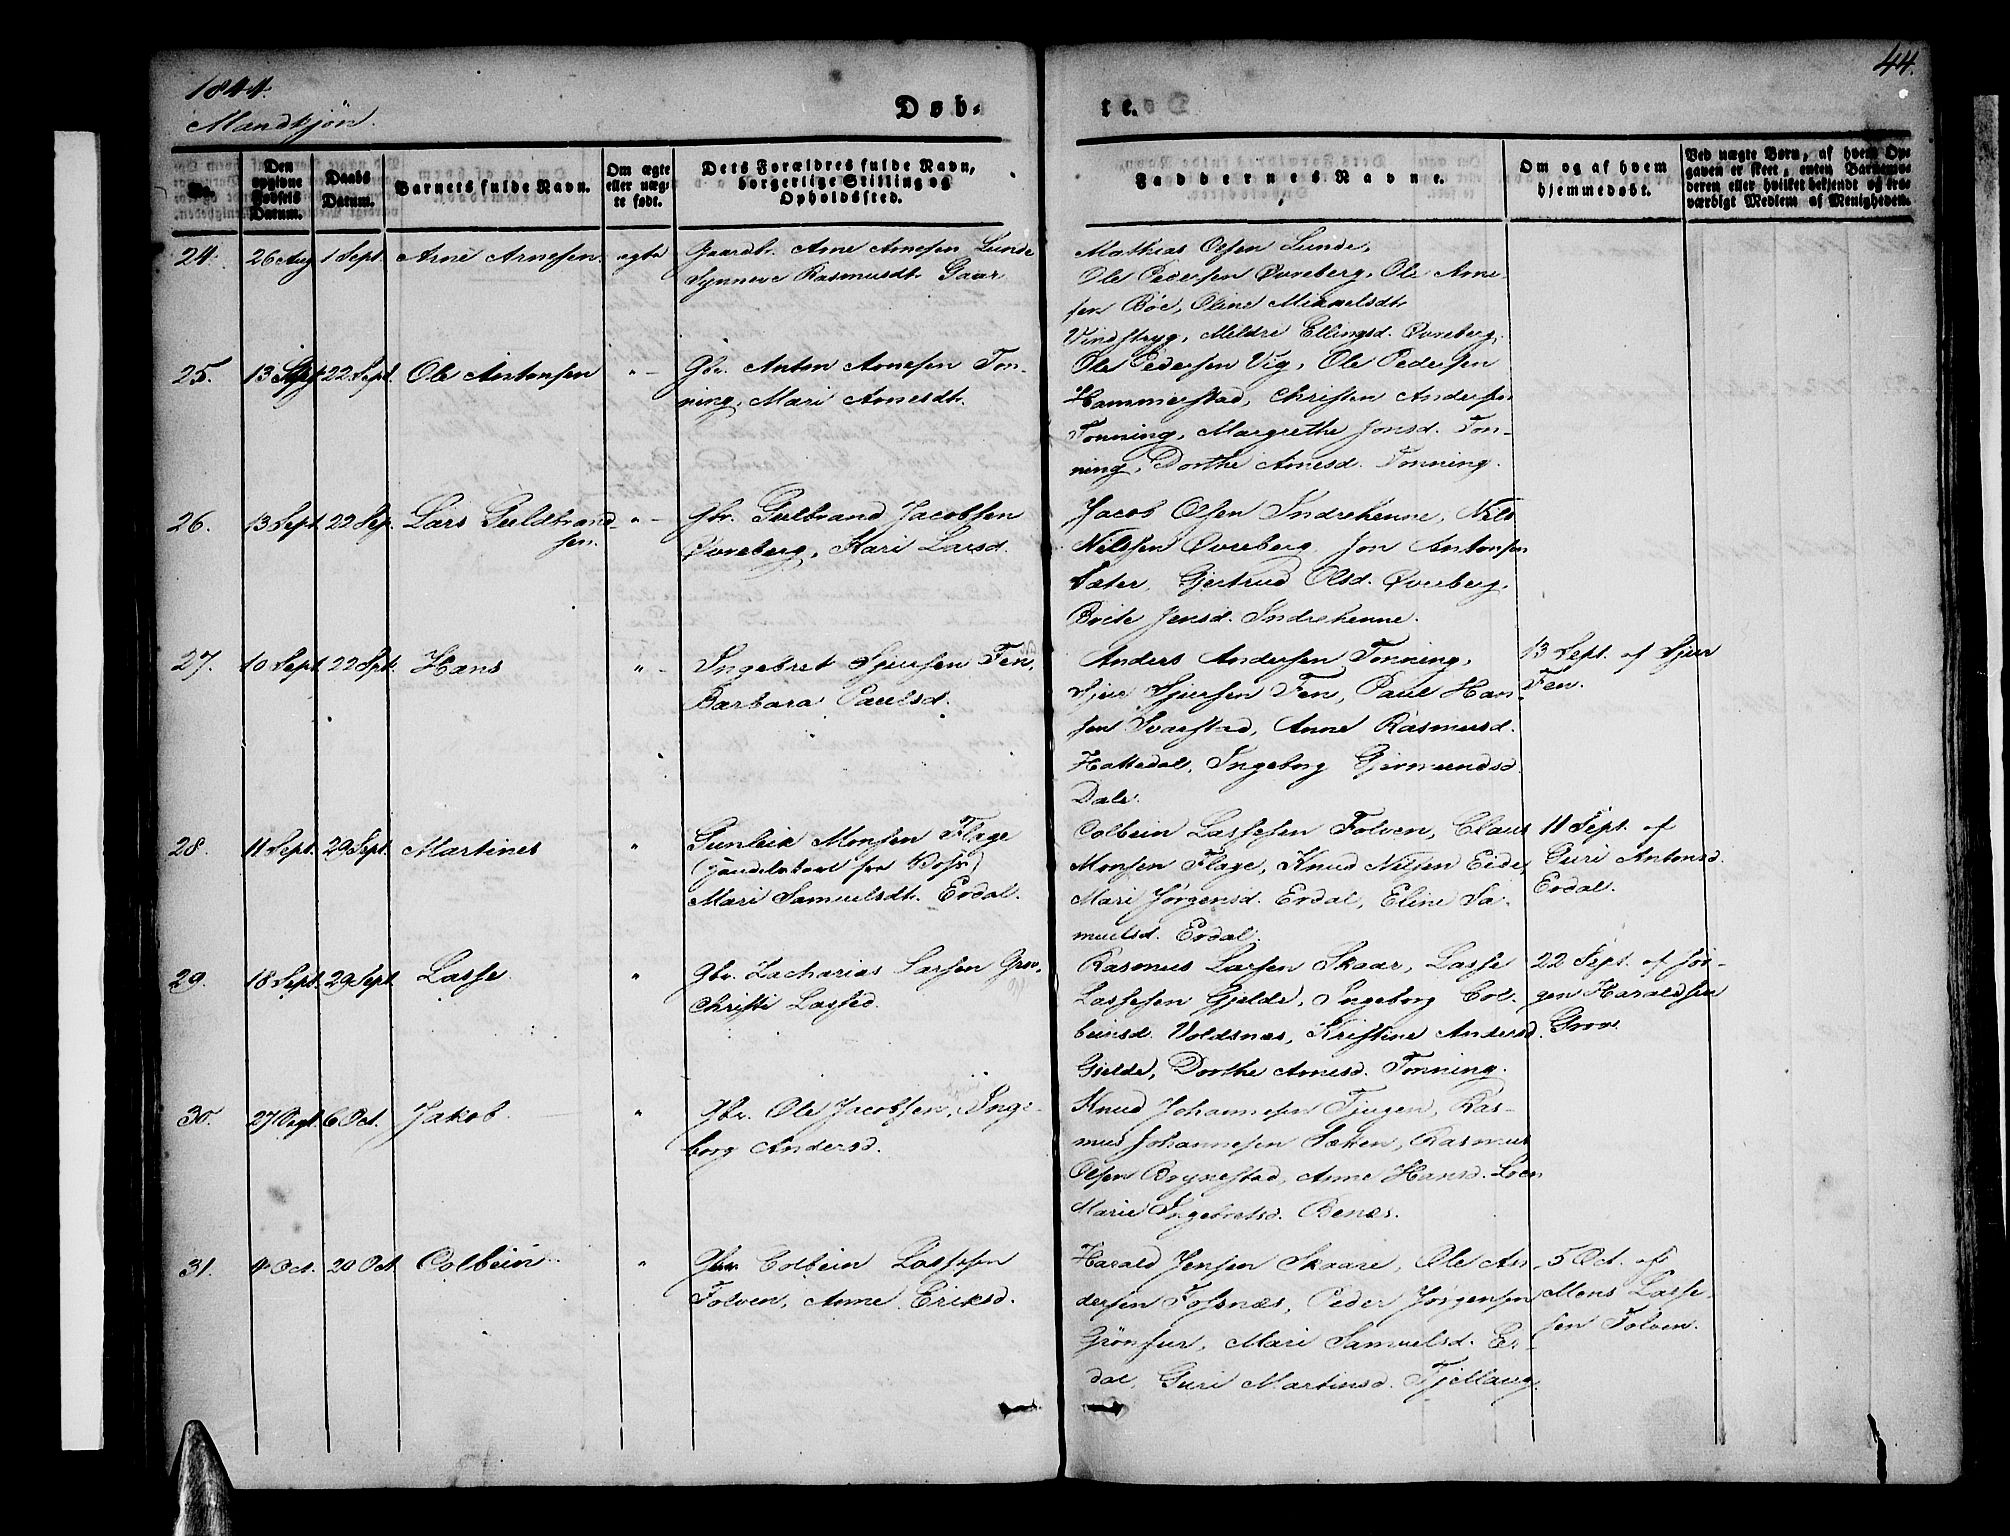 44.
1844.
Mandkjön.
Døb- te.
No.
Den opgivne Fødsels Datum.
Daabs Datum.
Barnets fulde Navn.
Om ægte eller uæg- te født.
Dets Forældres fulde Navn, borgerlige Stilling og Opholdssted.
Faddernes Navne.
Om og af hvem hjemmedøbt.
Ved uægte Børn, af hvem Op- gaven er skeet, enten Barnemo- deren eller hvilket bekjendt og tro- værdigt Medlem af Menigheden.
24. 26 Aug 1 Sept. Arne Arnesen. egte Gaardbr. Arne Arnesen Lunde
Synneve Rasmusdtr. Gaar
Mathias Olsen Lunde,
Ole Pedersen Øvreberg, Ole Arne-
sen Böe, Oline Mikkelsdtr
Vindstryg, Meldre Ellingsd. Øvreberg.
25. 13 22 Sept. Ole Antonsen " - Gbr. Anton Arnesen Ton-
ning, Mari Arnesdtr.
Ole Pedersen Vig, Ole Pedersen
Hammerstad, Christen Andersen
Tonning, Margrethe Jonsd. Ton-
ning, Dorthe Arnesd. Tonning.
26. 13 Sept. 22 Sep. Lars Guldbrand-
sen. " - Gbr. Gulbrand Jacobsen
Øvreberg, Kari Larsd.
Jacob Olsen Indrehenne, Nils
Nilssen Øvreberg Jon Antonsen
Sæter, Gjertrud Olsd. Øvreberg,
Brite Jensd. Indrehenne.
27. 10 Sept. 22 Spt. Hans " - Ingebret Sjursen Fen,
Barbara Paulsd.
Anders Andersen Tonning,
Sjur Sjursen Fen, Paul Han-
sen Svarstad, Anne Rasmusd.
Hattedal, Ingeborg Gjermundsd
Dale.
13 Sept. af Sjur
Fen.
28. 11 Sept. 29 Sept. Martines " Gunleik Monsen Flage
fra Vos)
Mari Samuelsdtr. Erdal.
Colbein Lassesen Folven, Claus
Monsen Flage, Knud Nilsen Eide,
Mari Jørgensd. Erdal, Eline Sa-
muelsd. Erdal.
11 Sept. af
Guri Antonsd.
Erdal.
29. 18 Sept. 29 Sept Lasse. " Gbr. Zacharias Larsen Grov,
Christi Lassed.
Rasmus Larsen Skaar, Lasse
Lassesen Gjelde, Ingeborg Col-
beinsd. Voldsnæs, Kristine Andersd.
Gielde, Dorthe Arnesd. Tonning.
22 Sept. af Jør-
gen Haraldsen
Grov.
30. 27 Sept. 6 Oct. Jakob. " Gbr. Ole Jacobsen, Inge-
borg Andersd.
Knud Johannesen Tjugen, Ras-
mus Johannesen Sætten, Rasmus
Olsen Brynestad, Anne Hansd. Loen
Marie Ingebretsd. Benæs.
31. 4 Oct. 20 Oct. Colbein " Gbr. Colbein Lassesen
Folven, Anne Eriksd.
Harald Jensen Skaare, Ole An-
dersen Fosnæs, Peder Jørgensen
Grönfur, Mari Samuelsd. Er-
dal, Guri Martinsd. Tjellaug.
5 Oct. af
Mons Lasse-
sen Folven.